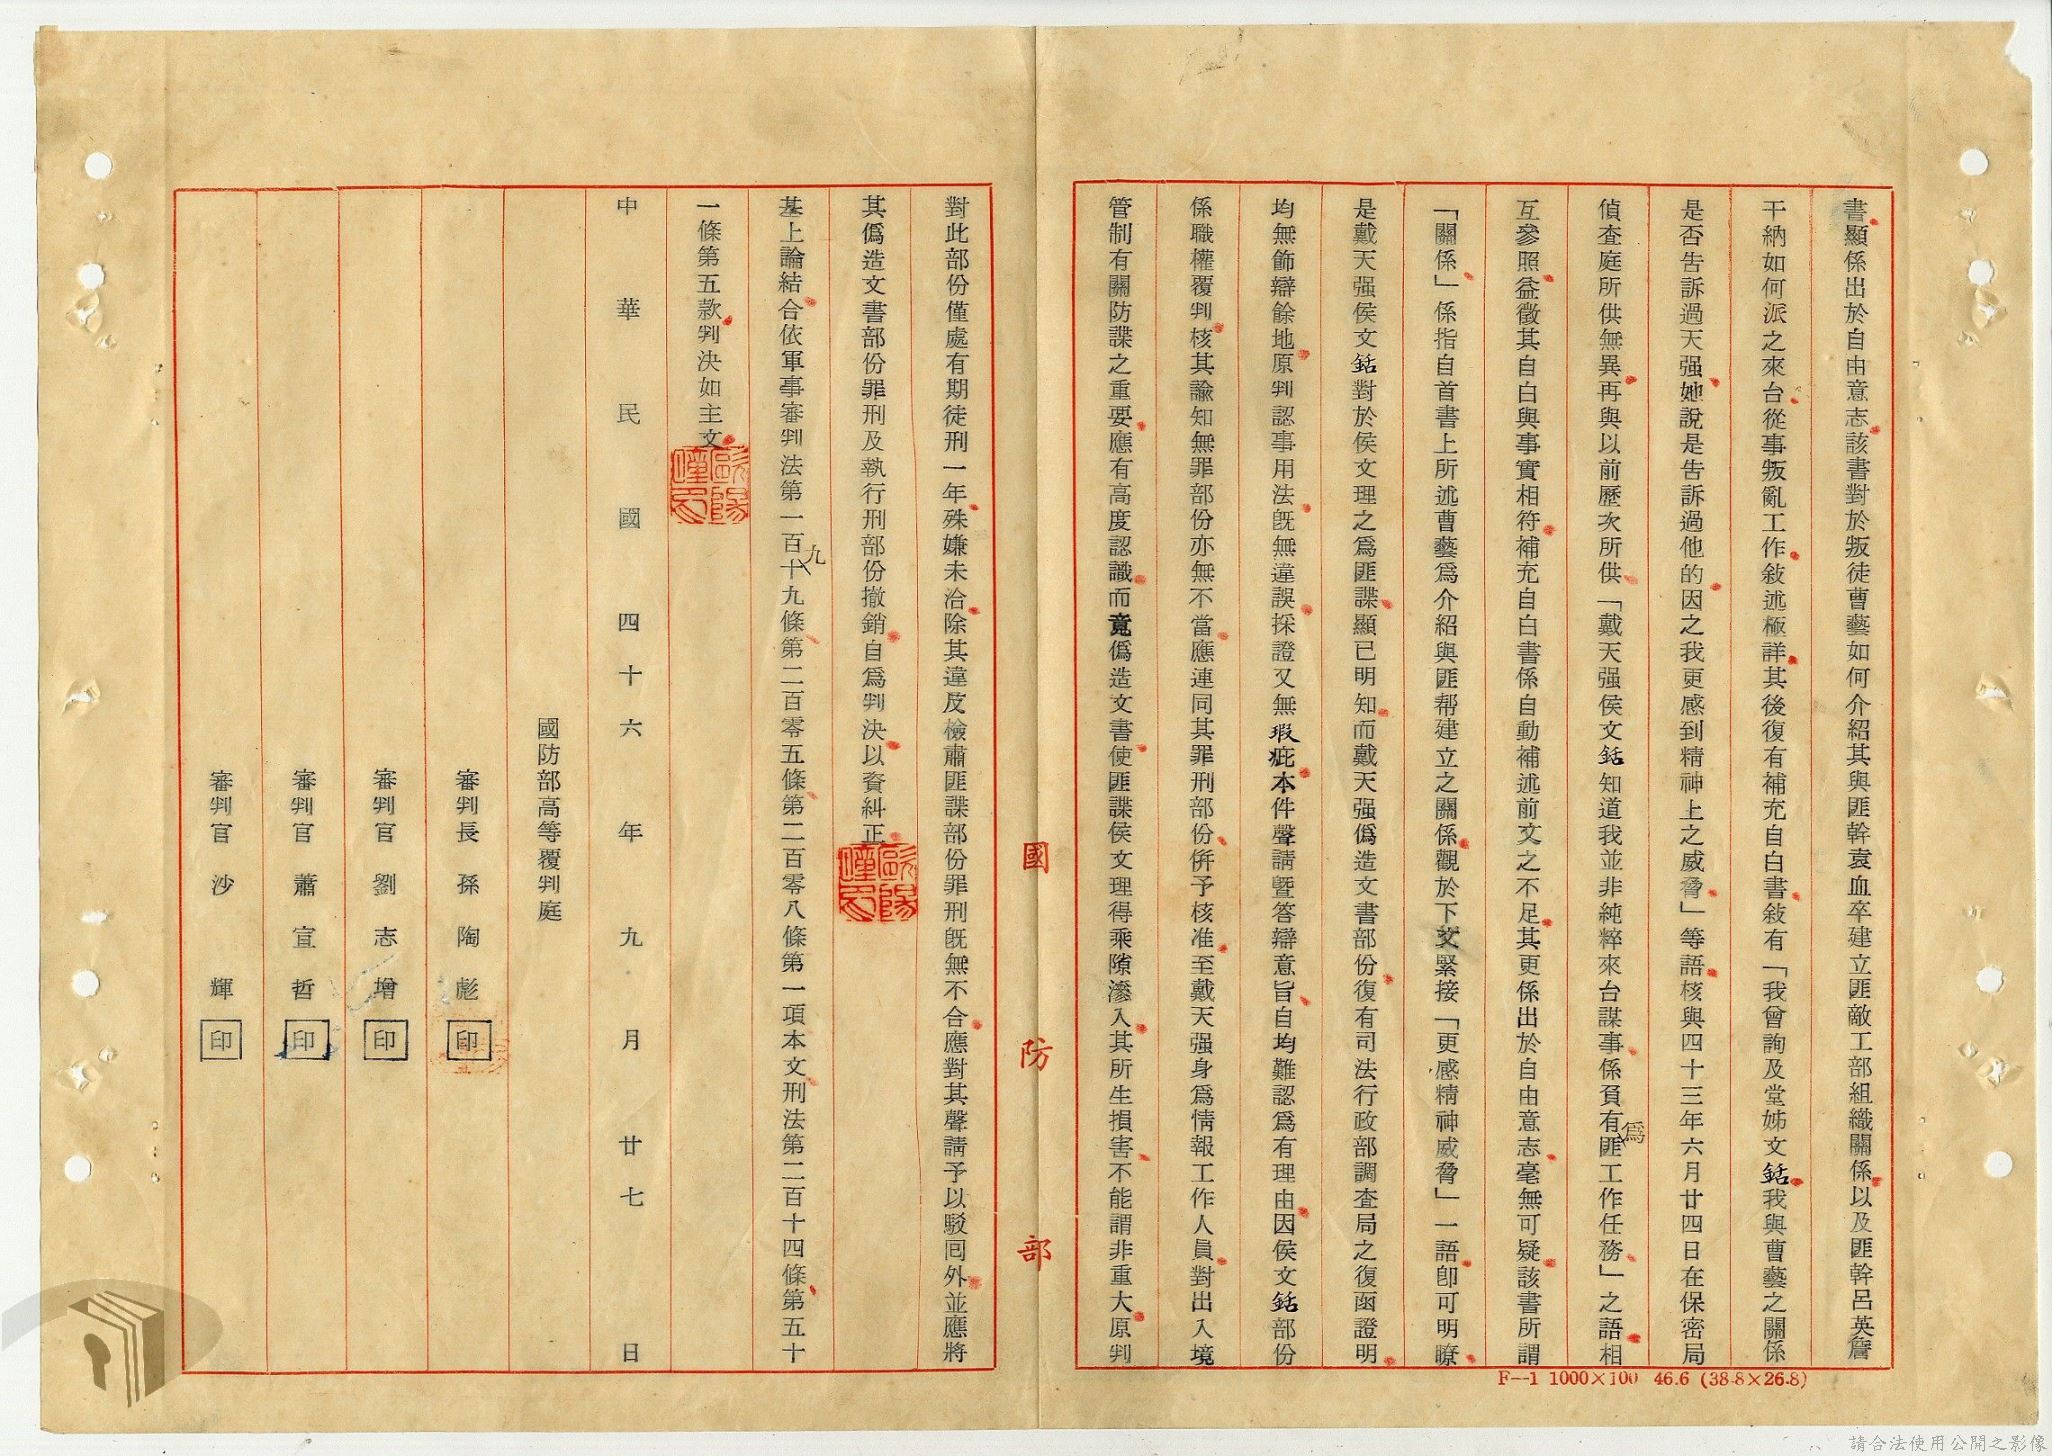 書顯係出於自由意志該書對於叛徒曹藝如何介紹其與匪幹袁血卒建立匪敵工部組織關係以及匪幹呂英詹
干納如何派之來台從事叛亂工作敍述極詳其後復有補充自白書敍有「我曾詢及堂姊文銛我與曹藝之關係
是否告訴過天强她說是告訴過他的因之我更感到精神上之威脅」等語核與四十三年六月廿四日在保密局
偵查庭所供無異再與以前歷次所供「戴天强侯文銛知道我並非純粹來台謀事係負有為匪工作任務」之語相
互參照益徵其自白與事實相符補充自白書係自動補述前文之不足其更係出於自由意志毫無可疑該書所謂
「關係」係指自首書上所述曹藝爲介紹與匪幫建立之關係觀於下文緊接「更感精神威脅」一語卽可明瞭
是戴天强侯文銛對於侯文理之爲匪諜顯已明知而戴天强僞造文書部份復有司法行政部調查局之復函證明
均無飾辯餘地原判認事用法旣無違誤採證又無瑕疵本件聲請暨答辯意旨自均難認爲有理由因侯文銛部份
係職權覆判核其諭知無罪部份亦無不當應連同其罪刑部份併予核准至戴天强身爲情報工作人員對出入境
管制有關防諜之重要應有高度認識而竟僞造文書使匪諜侯文理得乘隙滲入其所生損害不能謂非重大原判
國防部
F--1 1000×100 46.6 (38.8×26.8)
對此部份僅處有期徒刑一年殊嫌未洽除其違反檢肅匪諜部份罪刑旣無不合應對其聲請予以駁回外並應將
其僞造文書部份罪刑及執行刑部份撤銷自爲判決以資糾正
基上論結合依軍事審判法第一百九十九條第二百零五條第二百零八條第一項本文刑法第二百十四條第五十
一條第五款判決如主文
中華民國四十六年九月廿七日
國防部高等覆判庭
審判長 孫陶彪 印
審判官 劉志增 印
審判官 蕭宣哲 印
審判官 沙輝 印
請合法使用公開之影像